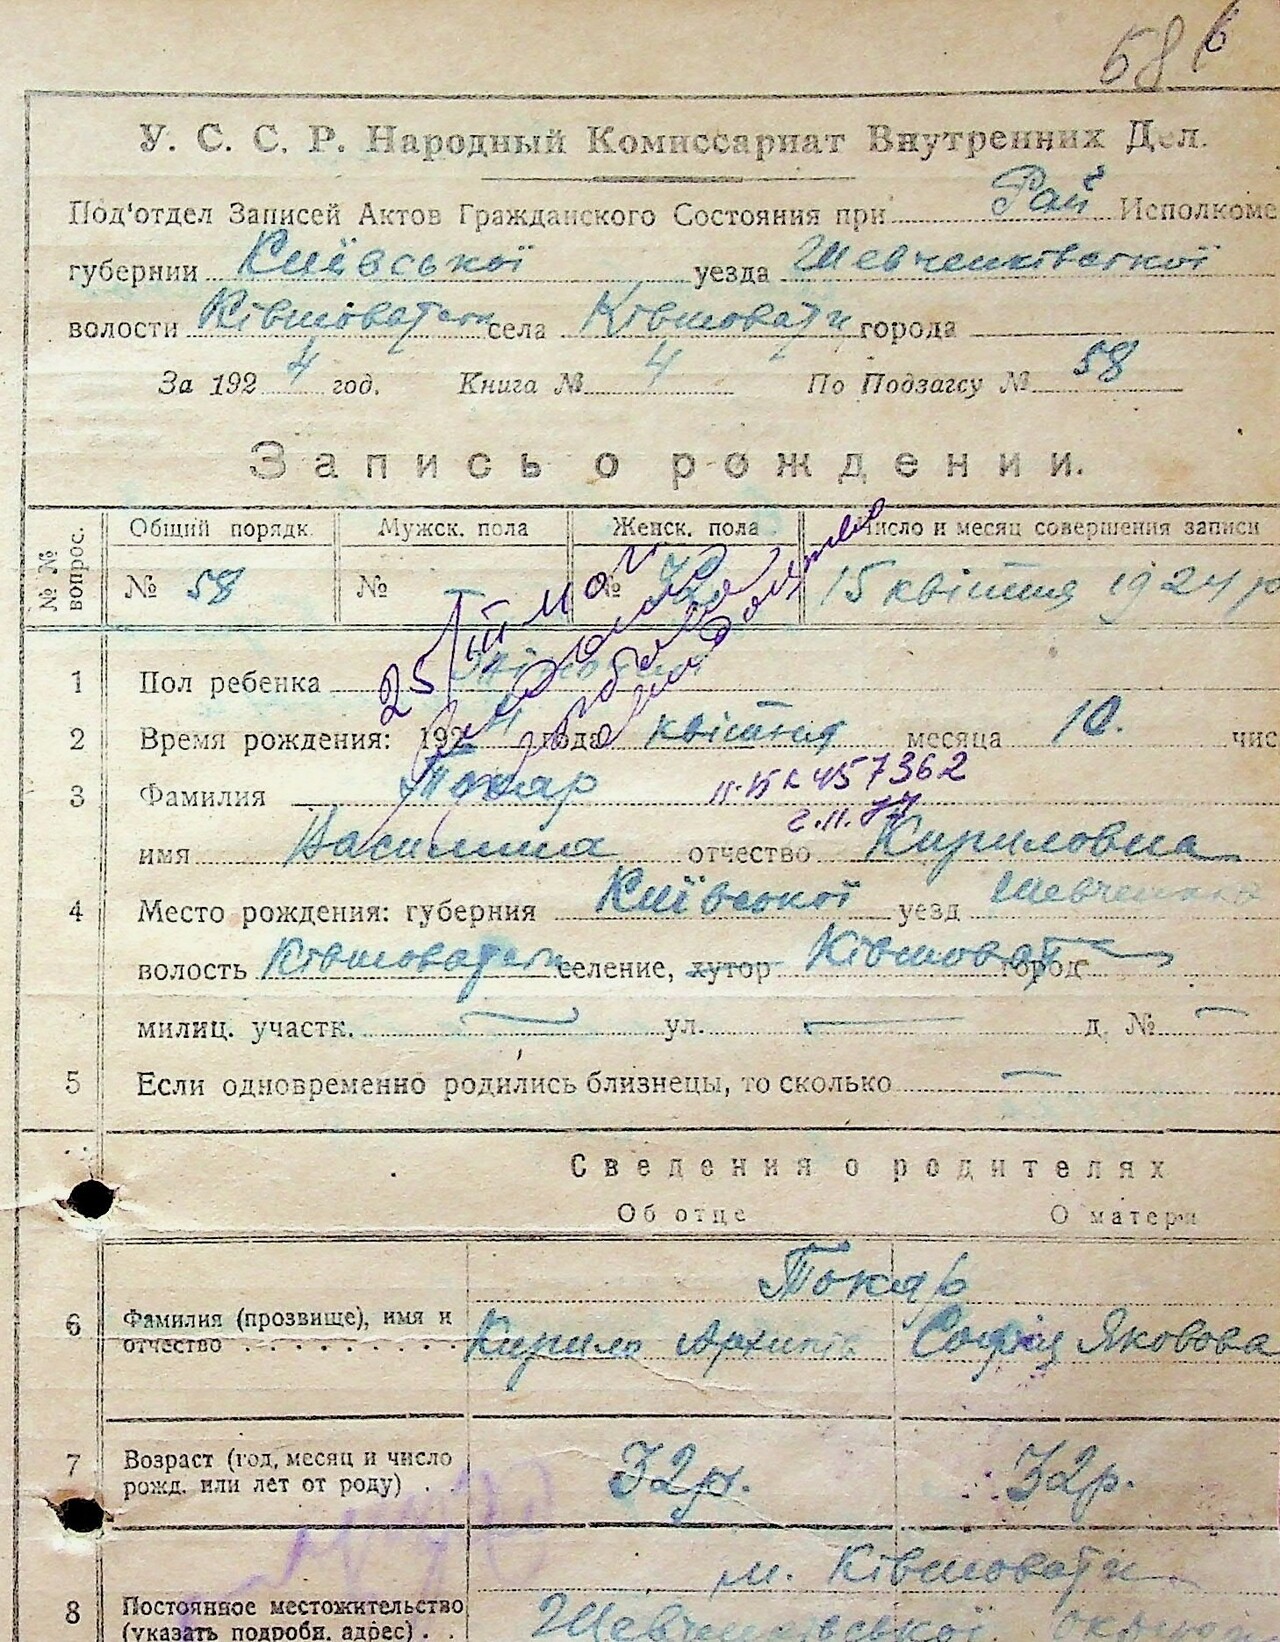 58
У. С. С. Р. Народный Комиссариат Внутренних Дел.
Под'отдел Записей Актов Гражданского Состояния при Рай Исполкоме
губернии Київської уезда Шевченківської
волости Ківшоватськ села Ківшовати города
За 1924 год. Книга № 4 По Подзагсу № 58
Запись о рождении.
№ № вопрос.
Общий порядк. Мужск. пола Женск. пола Число и месяц совершения записи
№ 58 № № 15 квітня 1924 р
1 Пол ребенка
2 Время рождения: 1924 года квітня месяца 10. чис
3 Фамилия Токар
п. 457362
имя Василина отчество Кириловна
4 Место рождения: губерния Київської уезд Шевченк
волость Ківшоватськ селение, хутор Ківшоват город
милиц. участк. ул. д. №
5 Если одновременно родились близнецы, то сколько
Сведения о родителях
Об отце О матери
Токар
6 Фамилия (прозвище), имя и
отчество Кирило Архипів Софія Яковова
7 Возраст (год, месяц и число
рожд. или лет от роду) . 32р. 32р.
м. Ківшовати
8 Постоянное местожительство Шевченківської округи
(указать подробн. адрес) . .